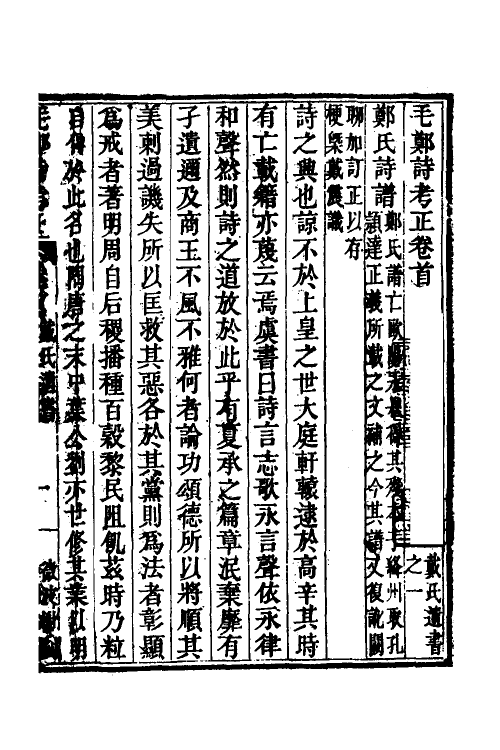 毛鄭詩考正卷首
戴氏遺書
之一
鄭氏詩譜
鄭氏譜亡歐陽其殘本于絳州取孔
穎達正義所載之文補之今其譜又復訛闕
聊加訂正以存
梗槩戴震識
詩之興也諒不於上皇之世大庭軒轅逮於高辛其時
有亡載籍亦蔑云焉虞書曰詩言志歌永言聲依永律
和聲然則詩之道放於此乎有夏承之篇章泯棄靡有
孑遺邇及商王不風不雅何者論功頌德所以將順其
美刺過譏失所以匡救其惡各於其黨則爲法者彰顯
爲戒者著明周自后稷播種百穀黎民阻飢茲時乃粒
自傳於此名也陶唐之末中葉公劉亦世修其業以明
戴氏遺書
一